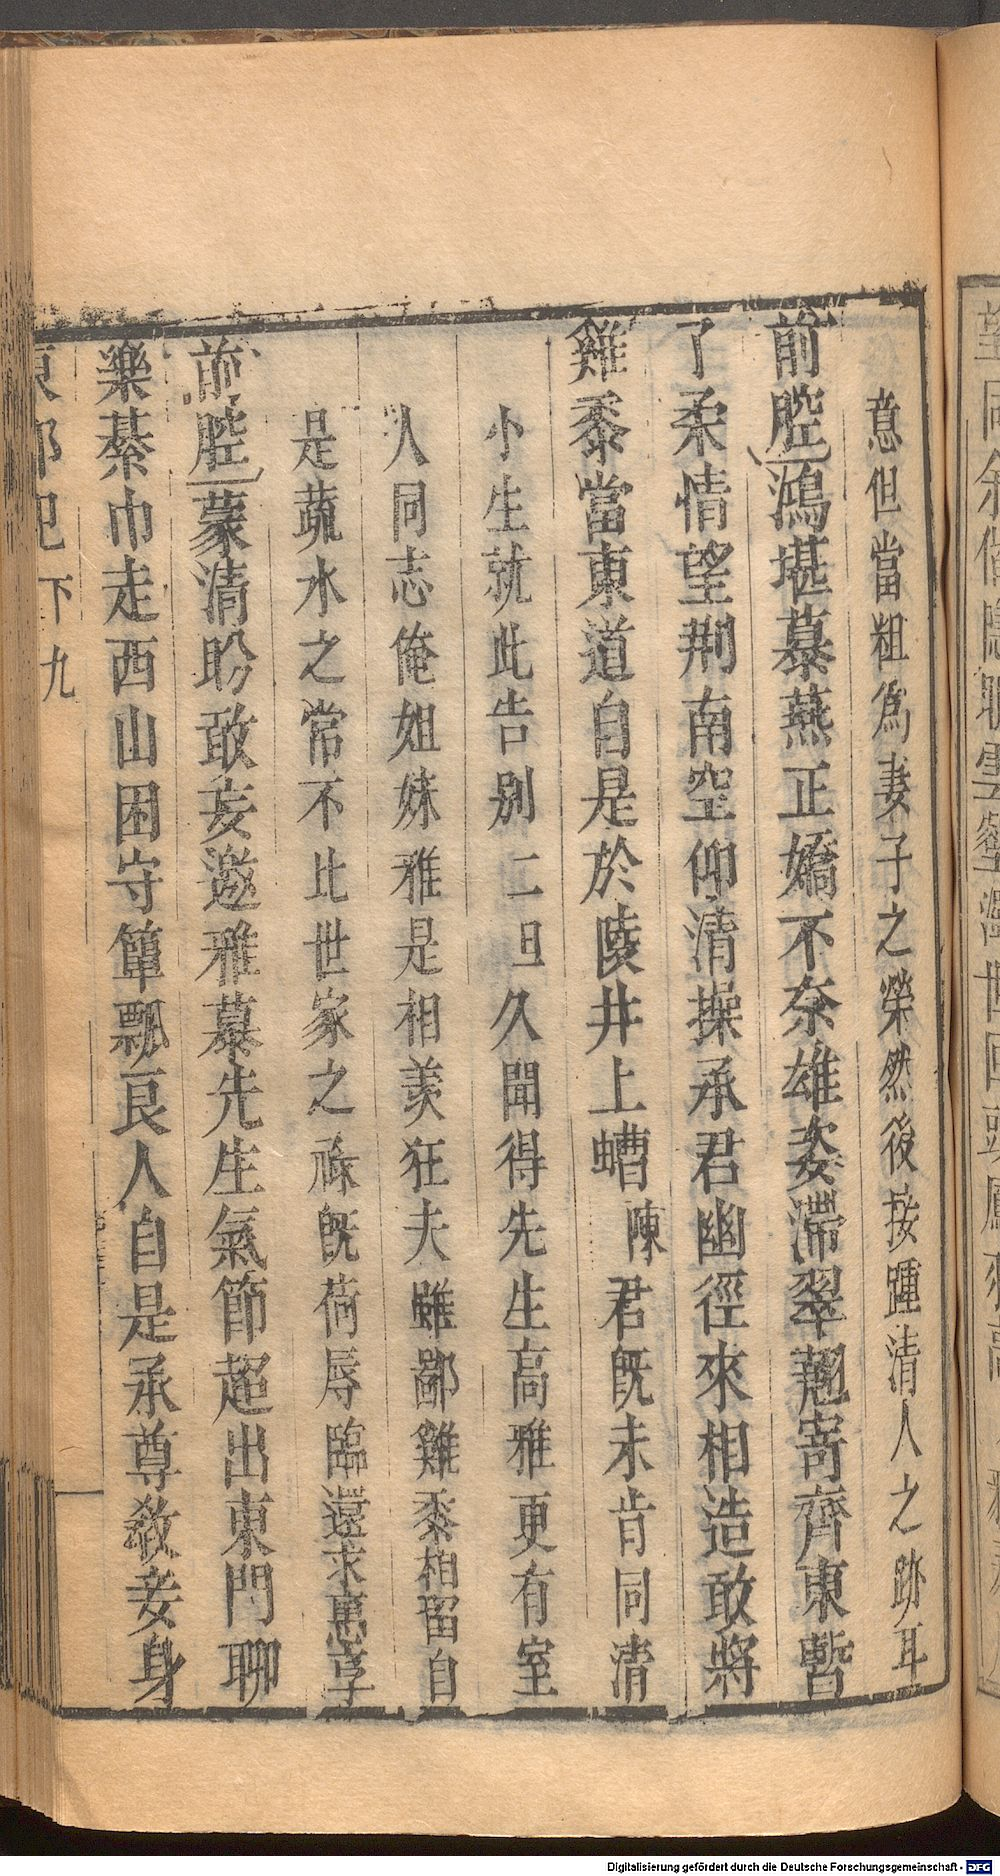 意但當粗爲妻子之榮然後接踵清人之跡耳
前腔鴻堪慕燕正嬌不奈雄姿滯翠翹寄齊東暫
了柔情望荆南空仰清操承君幽徑來相造敢將
雞黍當東道自是於陵井上螬陳君旣未肯同清
小生就此告别二旦久聞得先生高雅更有室
人同志俺姐妹雅是相羡狂夫雖鄙雞黍相留自
是蔬水之常不比世家之祿旣荷辱臨還求惠享
前腔蒙清盼敢妄邀雅慕先生氣節超出東門聊
樂綦巾走西山困守簞瓢良人自是承尊敎妾身
東郭記 下 九
Digitalisierung gefördert durch die Deutsche Forschungsgemeinschaft - DFG